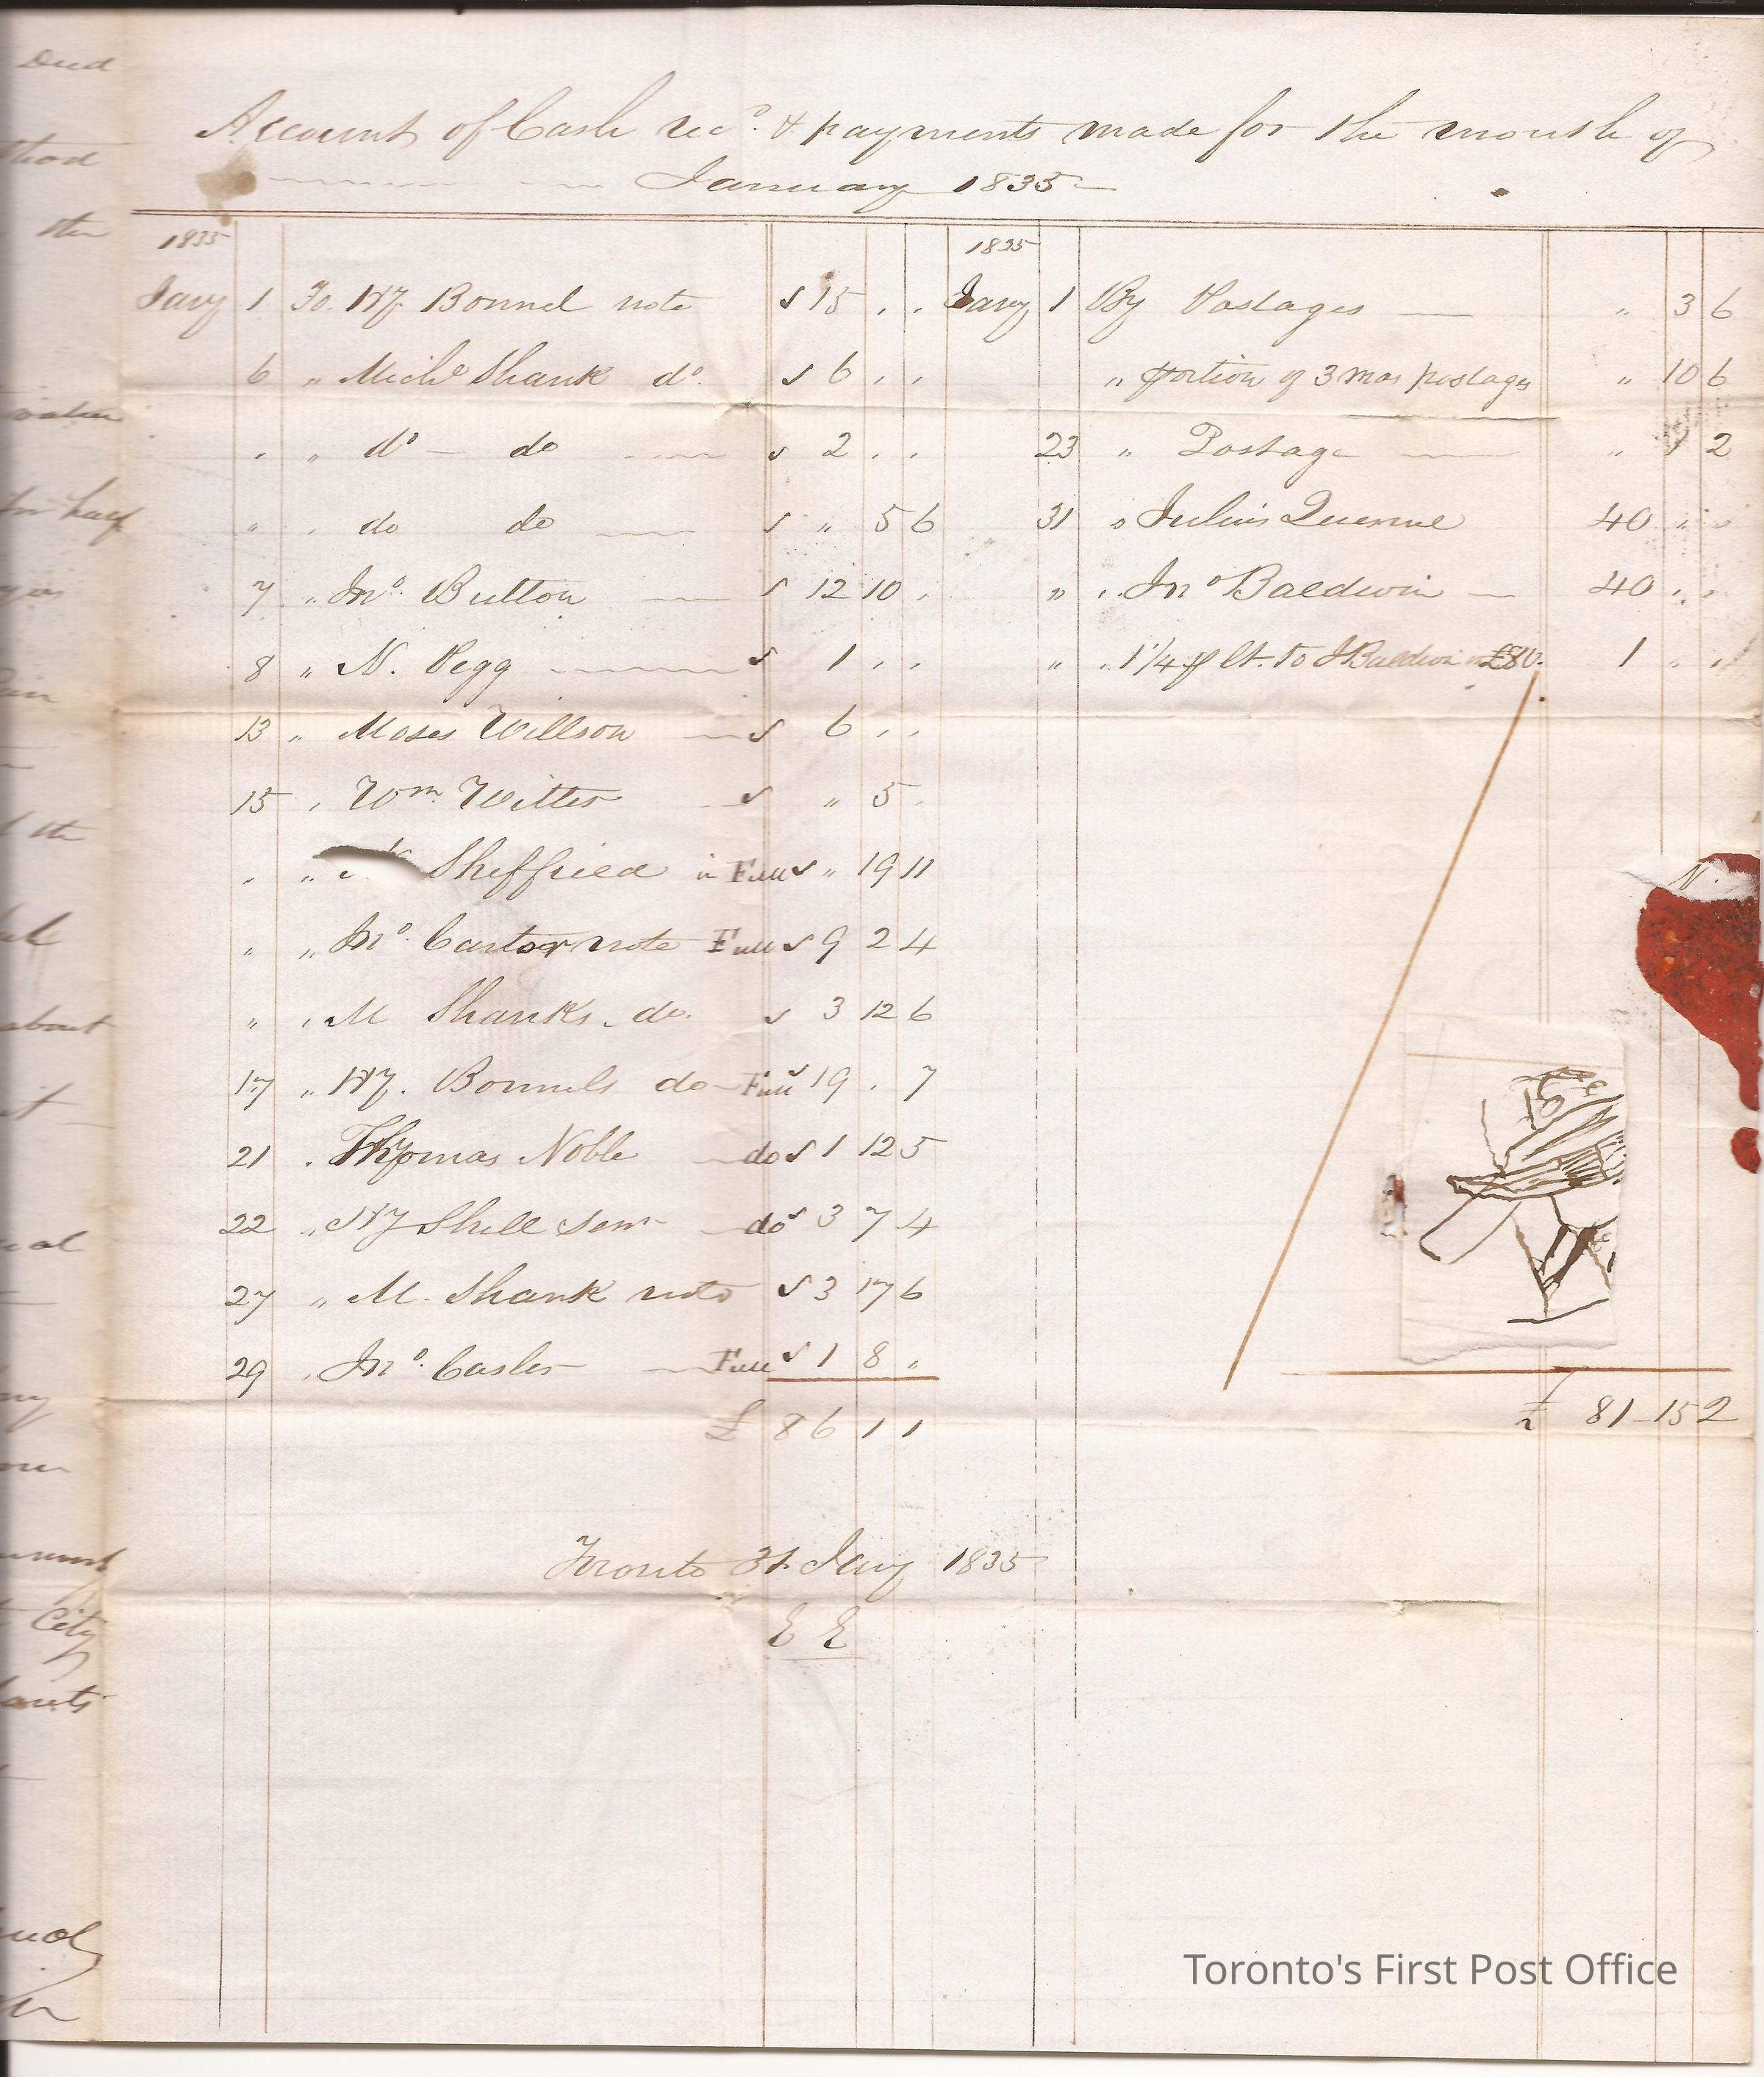 Account of Cash recd. & payments made for the month of
January 1835
1835
Jany 1 To Wm. Bonnel note 15 . .
6 " Michl Shank do. 6 . .
. " do - do 2 . .
" . do do " 5 6
7 " Jno. Button 12 10 .
8 " N. Pegg 1 . .
13 " Moses Willson 6 . .
15 . Wm. Witter " 5 .
. " Sheffield in Full " 19 11
" " Jno. Cantor note Full 9 2 4
" . M Shanks do. 3 12 6
17 " Wm. Bonnels do Full 19 . 7
21 . Thomas Noble do 1 12 5
22 " Shell Senr do 3 7 4
27 " M. Shank note 3 17 6
29 . Jno. Casler Full 1 8 "
£ 86 1 1
1835
Jany 1 By Postages " 3 6
" portion of 3 mos postages " 10 6
23 " Postage " 1 2
31 " Julius Quesnel 40 " "
" " Jno Baldwin 40 . .
" " 1 1/4 p Ct. to J Baldwin on £80. 1 . .
£ 81-15 2
Toronto 31 Jany 1835
E E
Deed
the
half
the
about
City
N.
Toronto's First Post Office